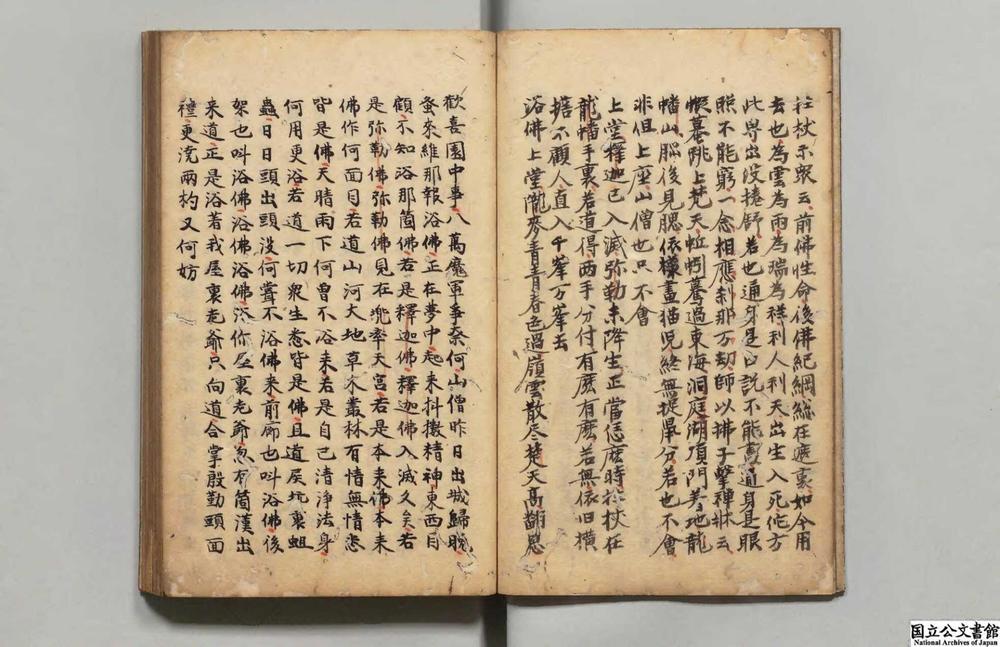 拄杖示衆云前佛性命後佛紀綱緫在這裏如今用
去也為雲為雨為瑞為祥利人利天出生入死佗方
此界出没捲舒若也通身是口說不能盡通身是眼
照不能窮一念相應刹那万劫師以拂子擊禪牀云
蝦蟇跳上梵天蚯蚓驀過東海洞庭湖頂門著地龍
幡山腦後見腮依樣畫猫兒終無捉鼠分若也不會
非但上座山僧也只不會
上堂釋迦已入滅弥勒未降生正當恁麽時拄杖在
龍幡手裏若道得兩手分付有麽有麽若無依旧横
擔不顧人直入千峯万峯去
浴佛上堂隴麥青青春色過嶺雲散尽楚天高翻思
歡喜園中事八萬魔軍爭奈何山僧昨日出城歸晚
蚤來維那報浴佛正在夢中起来抖擻精神東西目
顧不知浴那箇佛若是釋迦佛釋迦佛入滅久矣若
是弥勒佛弥勒佛見在兜率天宮若是本来佛本来
佛作何面目若道山河大地草木叢林有情無情悉
皆是佛天晴雨下何曾不浴来若是自己清淨法身
何用更浴若道一切衆生悉皆是佛且道屎坑裏蛆
蟲日日頭出頭没何甞不浴佛来前廊也呌浴佛後
架也呌浴佛浴佛浴佛浴你屋裏老爺忽有箇漢出
来道正是浴著我屋裏老爺只向道合掌殷勤頭面
禮更澆兩杓又何妨
国立公文書館
National Archives of Japan